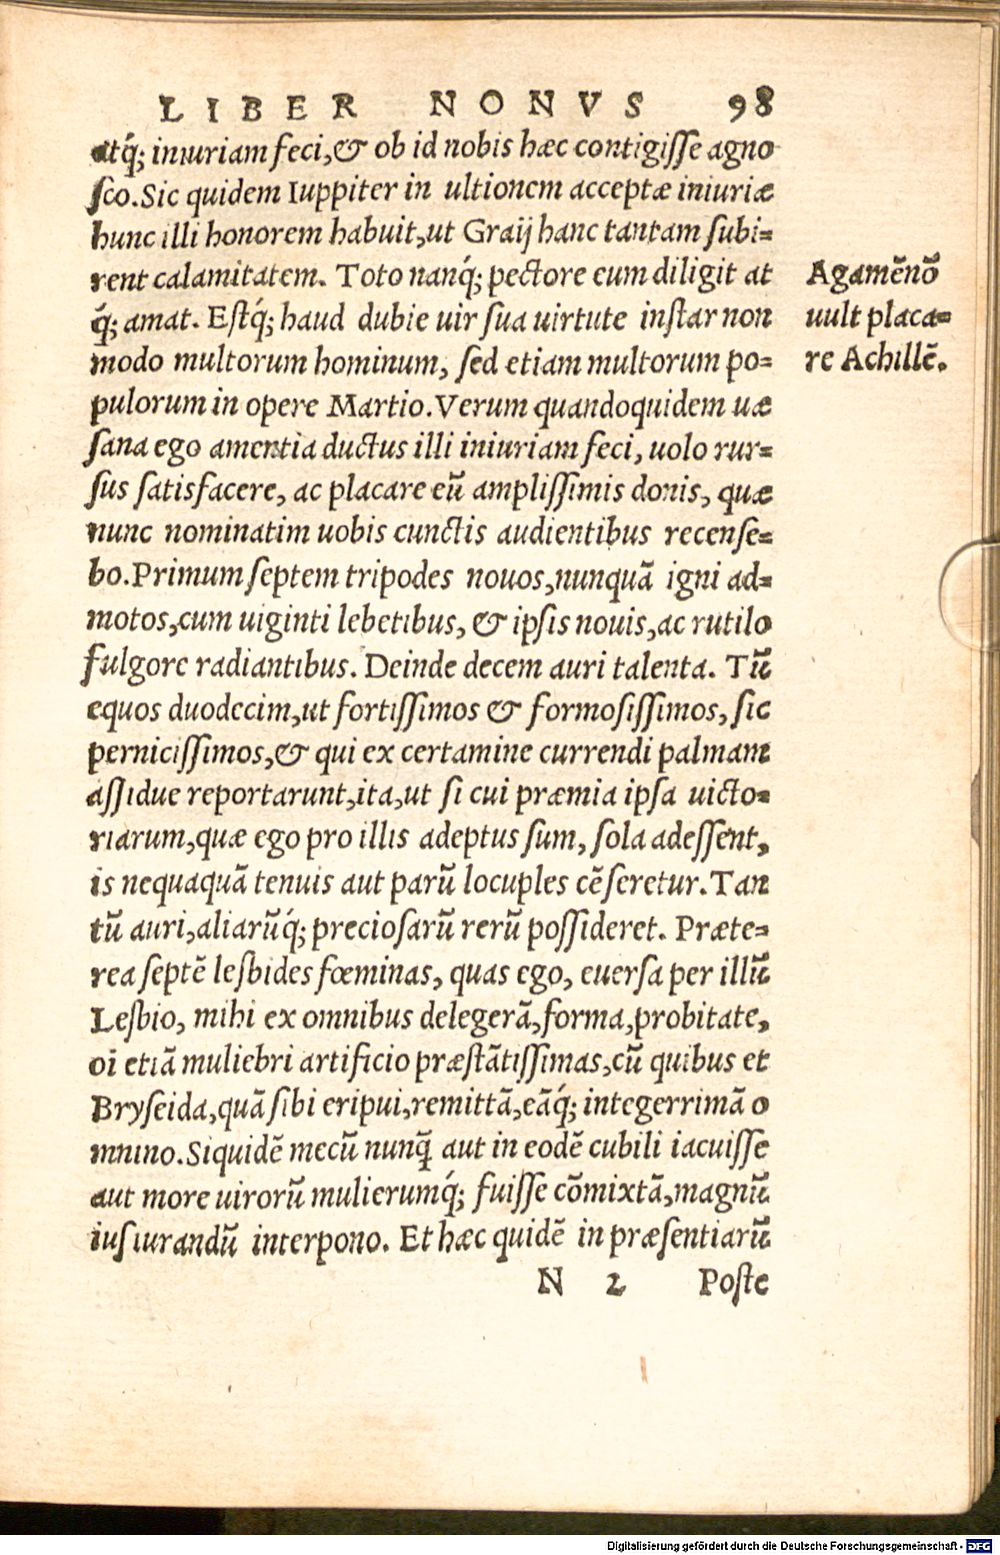 LIBER NONVS 98
atq́; iniuriam feci,& ob id nobis hæc contigiſſe agno
ſco.Sic quidem Iuppiter in ultionem acceptæ iniuriæ
hunc illi honorem habuit,ut Graij hanc tantam ſubi=
rent calamitatem. Toto nanq́; pectore eum diligit at
q́; amat. Eſtq́; haud dubie uir ſua uirtute inſtar non
modo multorum hominum, ſed etiam multorum po=
pulorum in opere Martio.Verum quandoquidem uæ
ſana ego amentia ductus illi iniuriam feci, uolo rur=
ſus ſatisfacere, ac placare eū ampliſſimis donis, quæ
nunc nominatim uobis cunctis audientibus recenſe=
bo.Primum ſeptem tripodes nouos,nunquā igni ad=
motos,cum uiginti lebetibus, & ipſis nouis,ac rutilo
fulgore radiantibus. Deinde decem auri talenta. Tū
equos duodecim,ut fortiſſimos & formoſiſſimos, ſic
perniciſſimos,& qui ex certamine currendi palmam
aſſidue reportarunt,ita,ut ſi cui præmia ipſa uicto=
riarum,quæ ego pro illis adeptus ſum, ſola adeſſent,
is nequaquā tenuis aut parū locuples cēſeretur.Tan
tū auri,aliarūq́; precioſarū rerū poſſideret. Præte=
rea ſeptē leſbides fœminas, quas ego, euerſa per illū
Leſbio, mihi ex omnibus delegerā,forma,probitate,
oī etiā muliebri artificio præſtātiſſimas,cū quibus et
Bryſeida,quā ſibi eripui,remittā,eāq́; integerrimā o
mnino.Siquidē mecū nunq̄ aut in eodē cubili iacuiſſe
aut more uirorū mulierumq́; fuiſſe cōmixtā,magnū
iuſiurandū interpono. Et hæc quidē in præſentiarū
N 2 Poſte
Agamēnō
uult placa=
re Achillē.
Digitalisierung gefördert durch die Deutsche Forschungsgemeinschaft - DFG